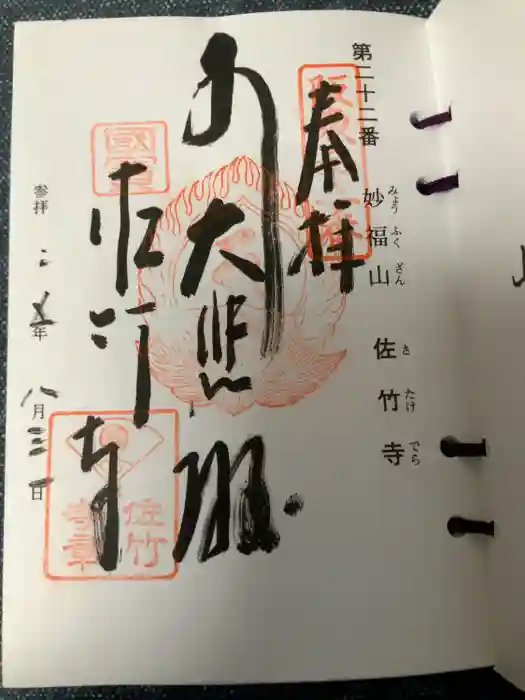 第二十二番
妙福山　佐竹寺
みょうふくざん　さたけでら
奉拝
大悲殿
佐竹寺
參拝　二　五年　八月三一日
國寶
佐竹
寺章